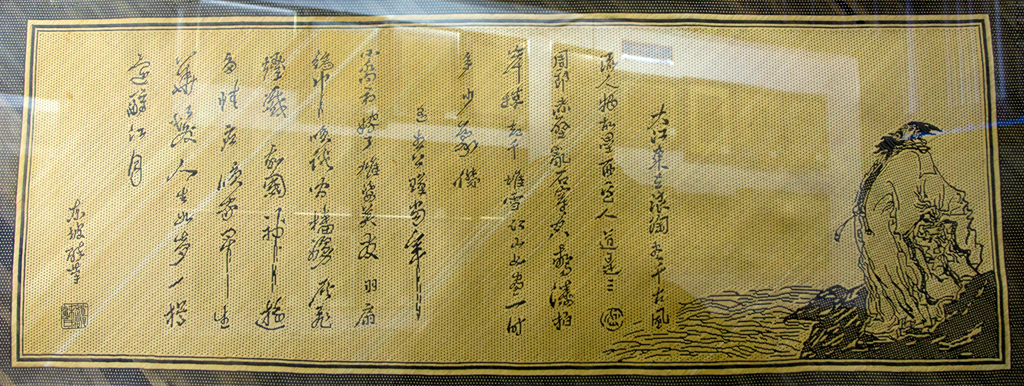 大江東去浪淘尽千古風
流人物故壘西邊人道是三國
周郎赤壁亂石穿空驚濤拍
岸捲起千堆雪江山如畫一時
多少豪傑
遥想公瑾當年
小喬初嫁了雄姿英发羽扇
綸巾談笑间檣櫓灰飛
煙滅故國神游
多情應笑我早生
華髮人生如夢一樽
還酹江月
東坡醉筆